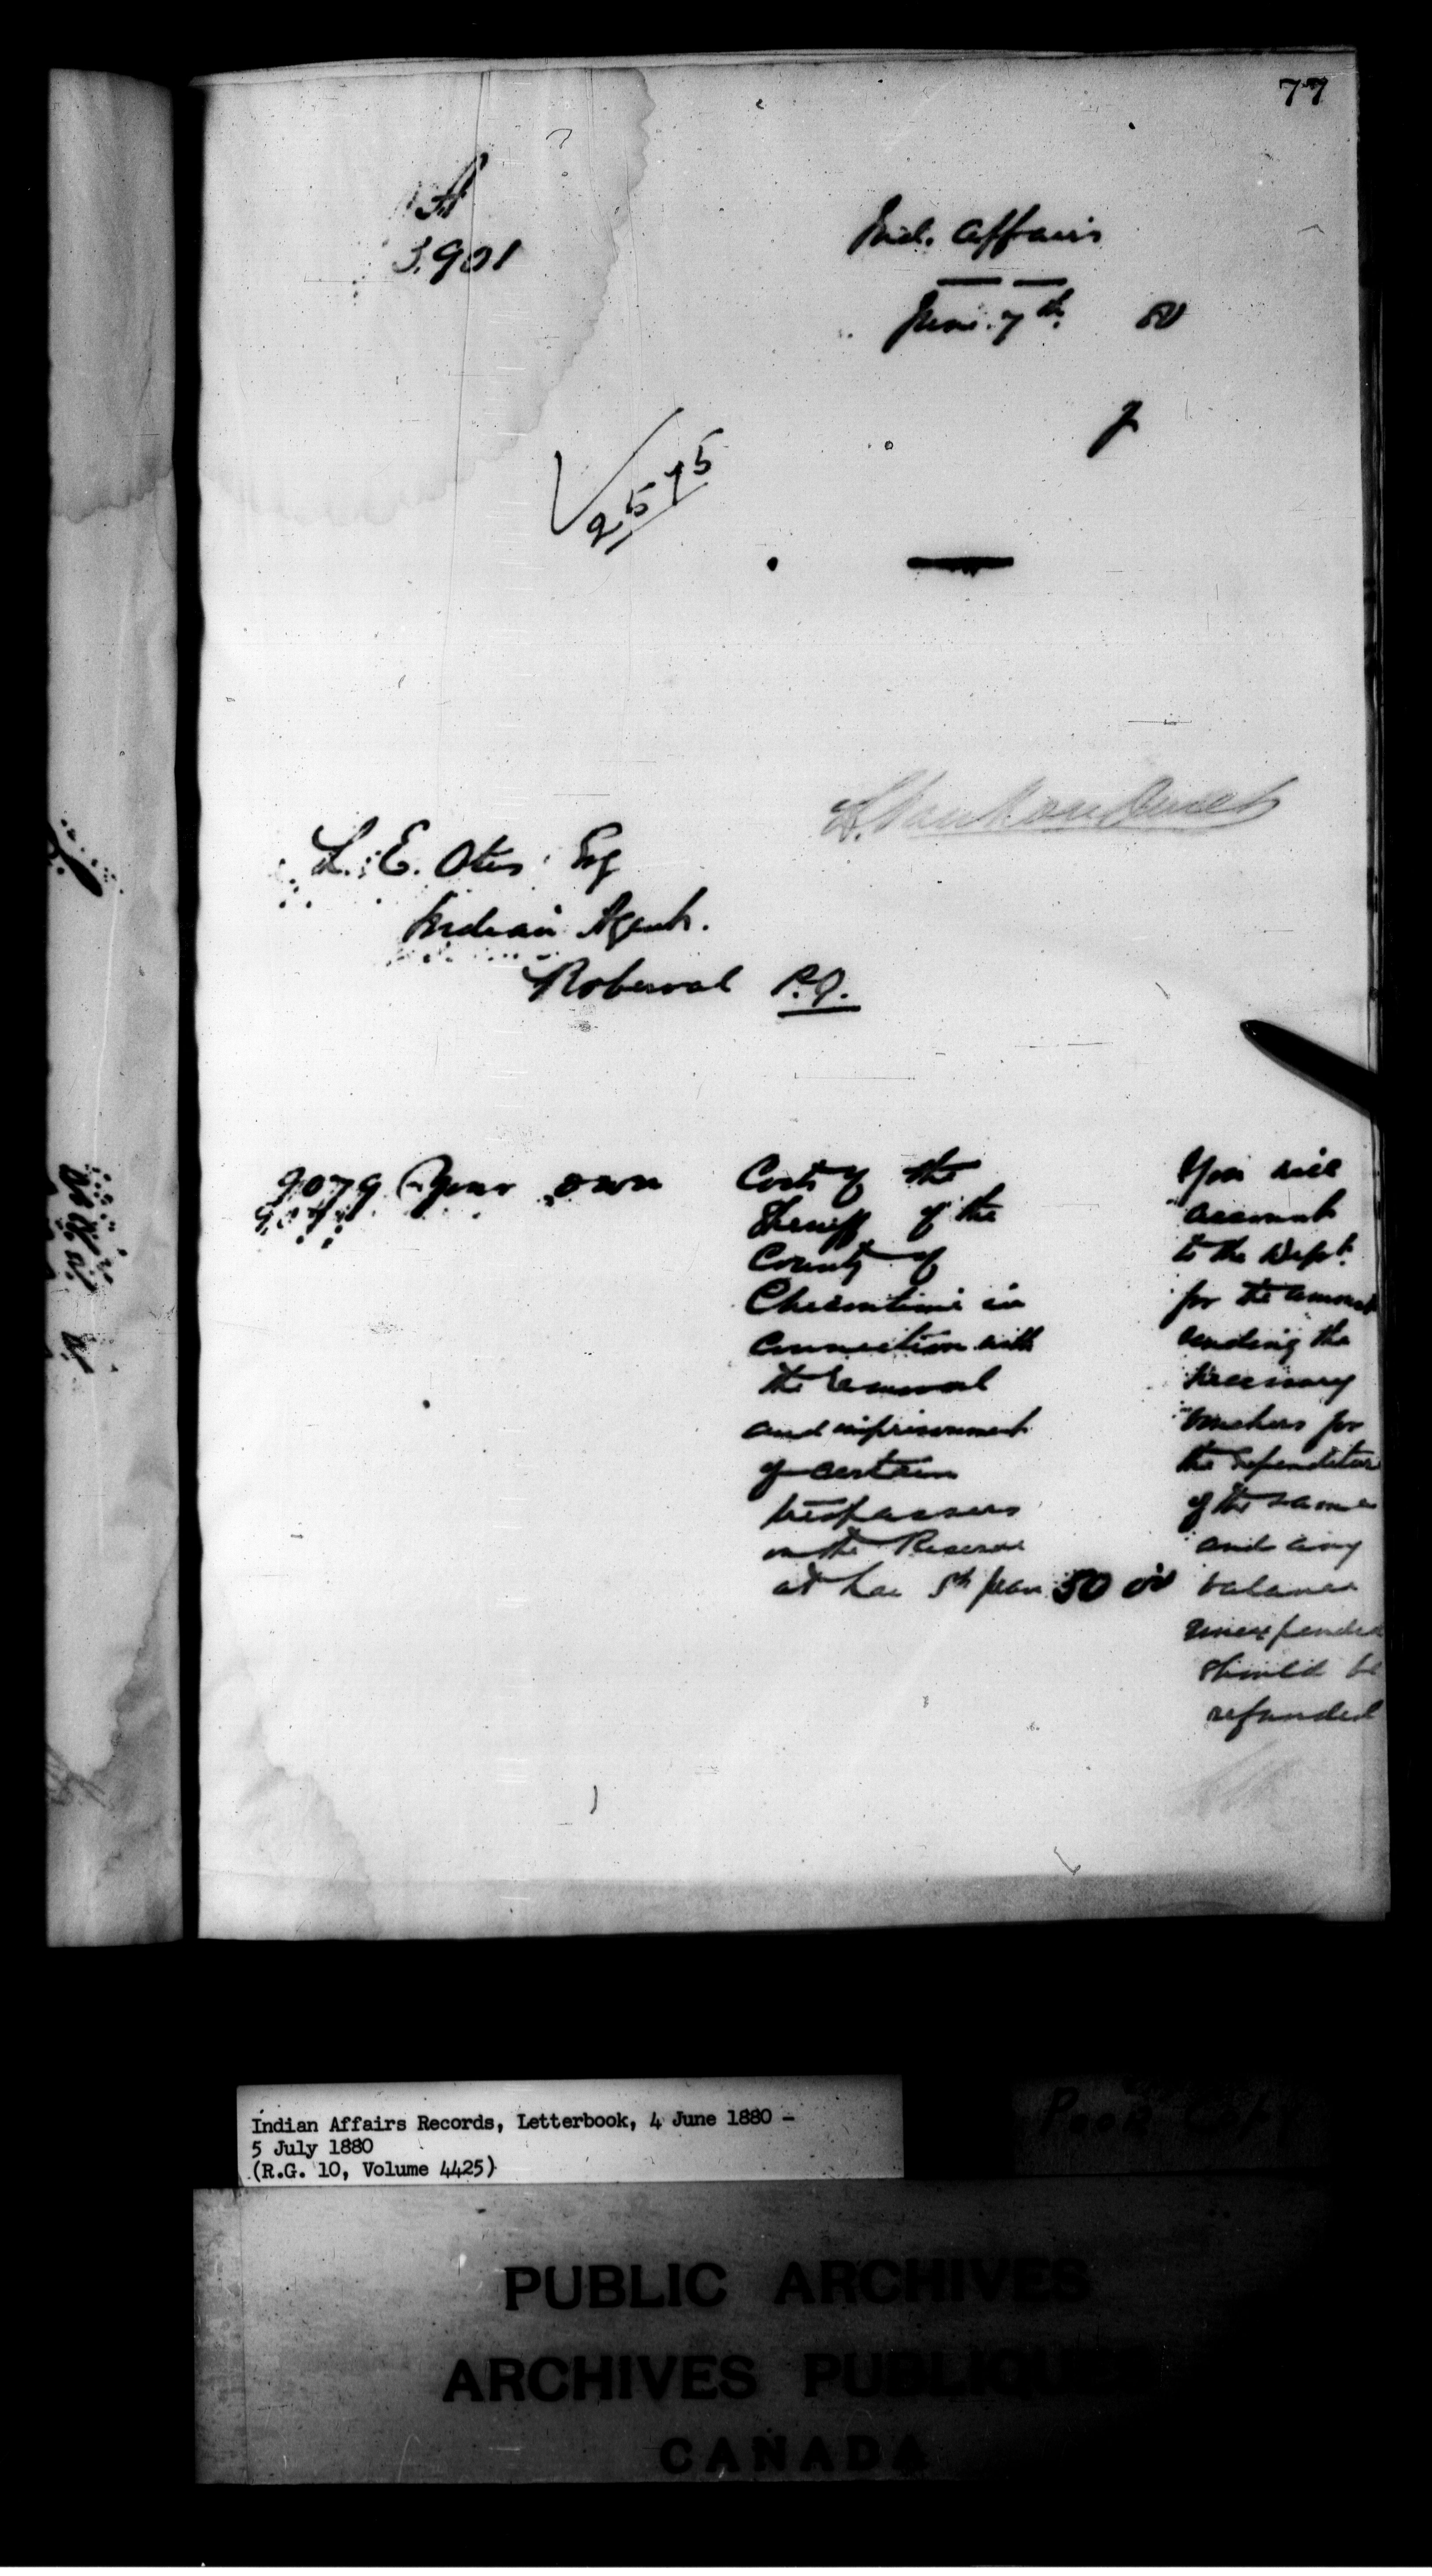 77
A
3.901
Ind. Affairs
June 7th 80
2575
L. Vankoughnet
L. E. Otis Esq
Indian Agent.
Roberval P.Q.
9079 Your own
Costs of the
Sheriff of the
County of
Chicoutimi in
connection with
the removal
and imprisonment
of certain
trespassers
on the Reserve
at Lac St Jean 50 00
You will
account
to the Dept.
for the amount
sending the
necessary
vouchers for
the expenditure
of the same
and any
balance
unexpended
should be
refunded
Indian Affairs Records, Letterbook, 4 June 1880 -
5 July 1880
(R.G. 10, Volume 4425)
PUBLIC ARCHIVES
ARCHIVES PUBLIQUES
CANADA